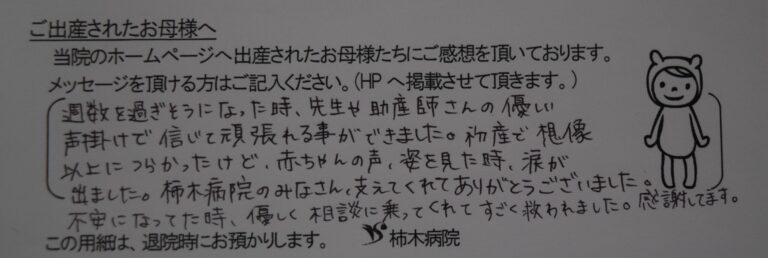 ご出産されたお母様へ
当院のホームページへ出産されたお母様たちにご感想を頂いております。
メッセージを頂ける方はご記入ください。(HPへ掲載させて頂きます。)
週数を過ぎそうになった時、先生や助産師さんの優しい
声掛けで信じて頑張れる事ができました。初産で想像
以上につらかったけど、赤ちゃんの声、姿を見た時、涙が
出ました。柿木病院のみなさん、支えてくれてありがとうございました。
不安になってた時、優しく相談に乗ってくれてすごく救われました。感謝してます。
この用細は、退院時にお預かりします。 柿木病院